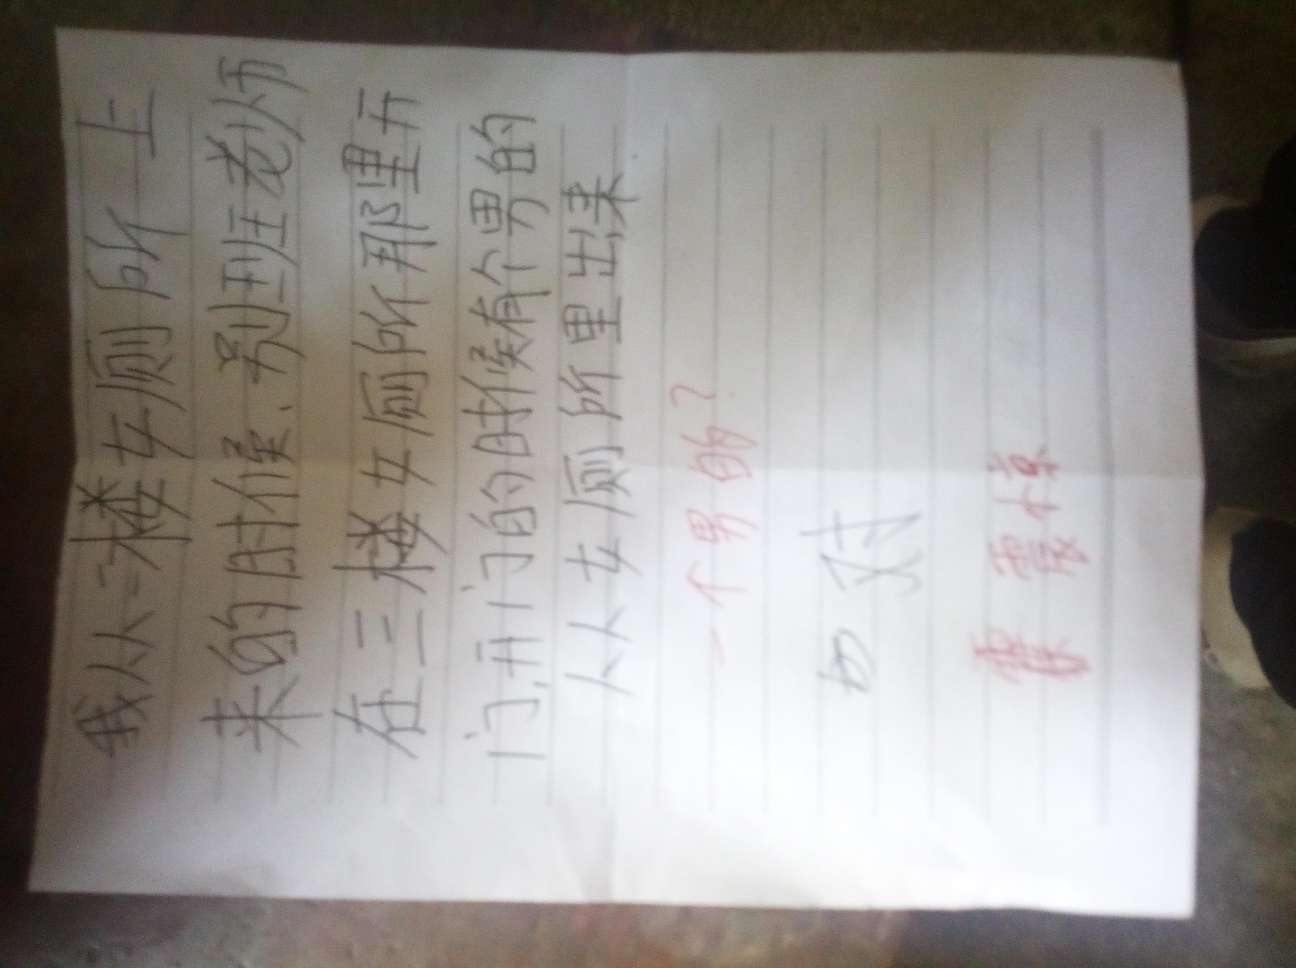 我从二楼女厕所上
来的时候、别班老师
在三楼女厕所那里开
门,开门的时候有个男的
从女厕所里出来
一个男的?
对
震惊